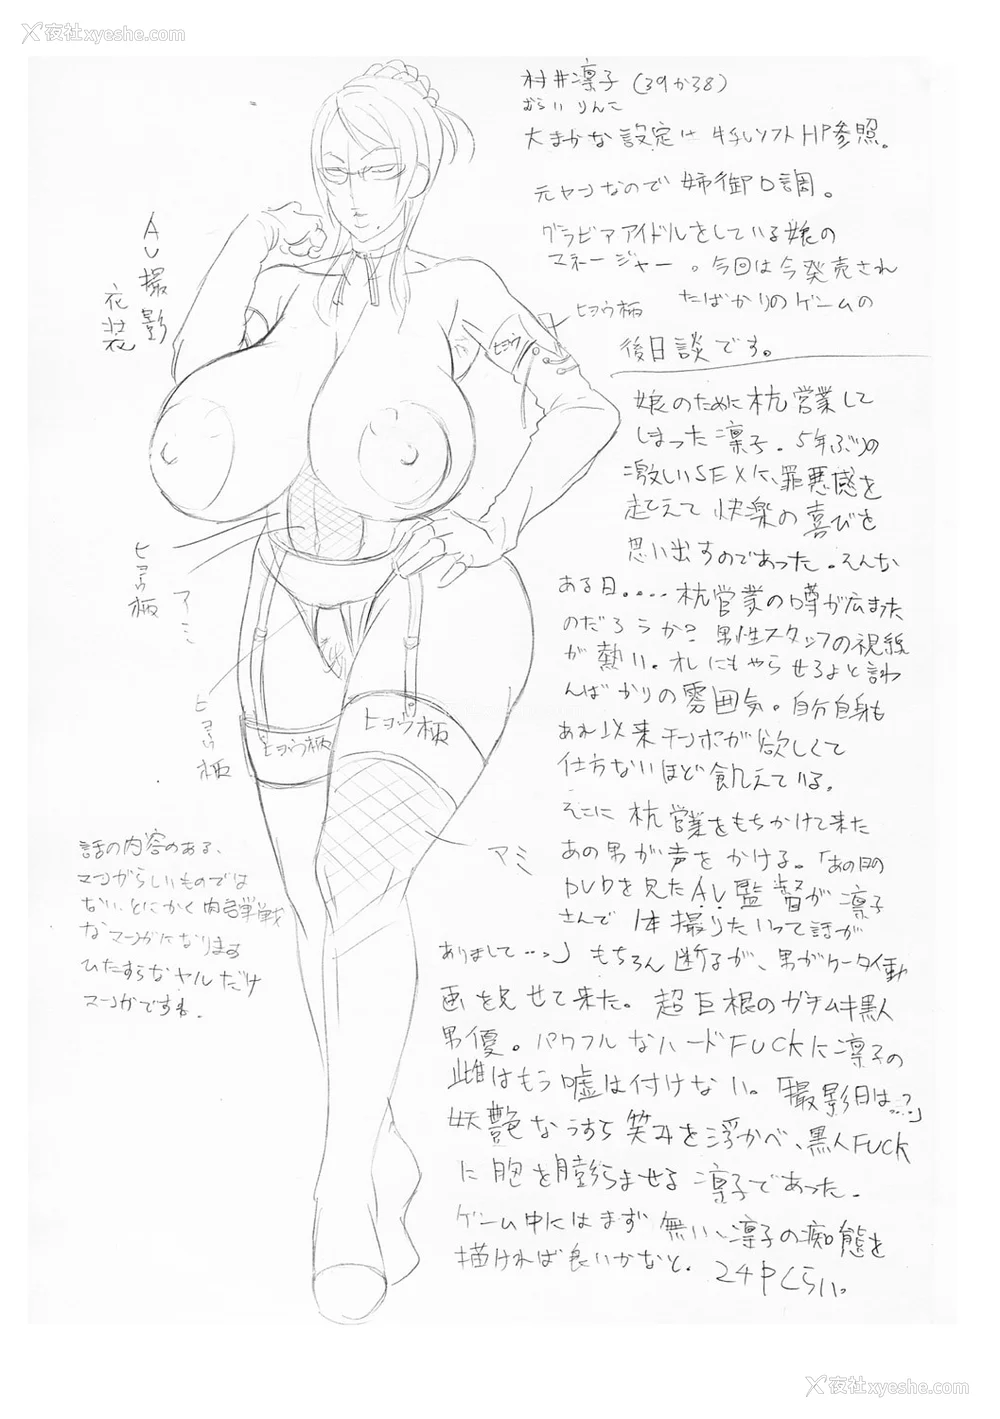 夜社xyeshe.com
村井凛子(39か38)
むらい りんこ
大まかな設定は牛乳ソフトHP参照。
元ヤンなので姉御口調。
グラビアアイドルをしている娘の
マネージャー。今回は今発売され
たばかりのゲームの
後日談です。
AV撮影
衣装
ヒョウ柄
ヒョウ
娘のために枕営業して
しまった凛子。5年ぶりの
激しいSEXに、罪悪感を
超えて快楽の喜びを
思い出すのであった。そんな
ある日。...枕営業の噂が広まった
のだろうか?男性スタッフの視線
が熱い。オレにもやらせろよと言わ
んばかりの雰囲気。自分自身も
あれ以来チンポが欲しくて
仕方ないほど飢えている。
そこに枕営業をもちかけて来た
あの男が声をかける。「あの時の
DVDを見たAV監督が凛子
さんで1本撮りたいって話が
ありまして...」もちろん断るが、男がケータイ動
画を見せて来た。超巨根のガチムキ黒人
男優。パワフルなハードFUCKに凛子の
雌はもう嘘は付けない。「撮影日は...?」
妖艶なうすら笑みを浮かべ、黒人FUCK
に胸を膨らませる凛子であった。
ゲーム中にはまず無い、凛子の痴態を
描ければ良いかなと。24Pくらい。
ヒョウ柄
アミ
ヒョウ柄
ヒョウ柄
ヒョウ柄
アミ
話の内容のある、
マンガらしいものでは
ない、とにかく肉弾戦
なマンガになります
ひたすらなヤルだけ
マンガですね。
夜社xyeshe.com